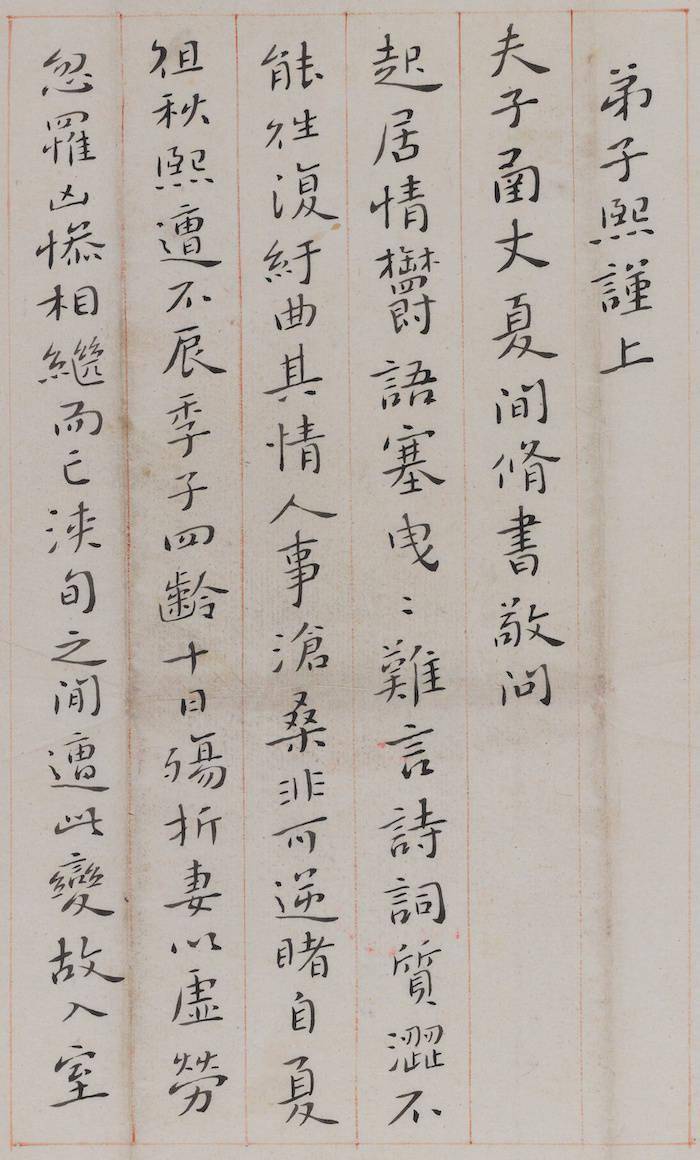 弟子熙謹上
夫子函丈夏間脩書敬問
起居情鬱語塞曳〻難言詩詞質澀不
能徃復紆曲其情人事滄桑非可逆睹自夏
徂秋熙遭不辰季子四齡十日殤折妻以虛勞
忽罹凶慘相繼而亡浹旬之間遭此變故入室